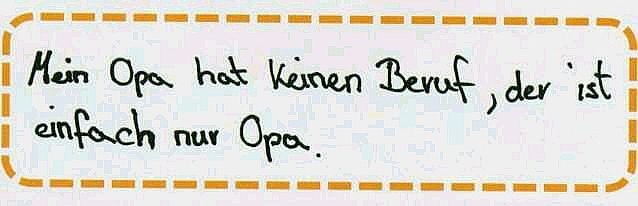 Mein Opa hat keinen Beruf, der ist
einfach nur Opa.